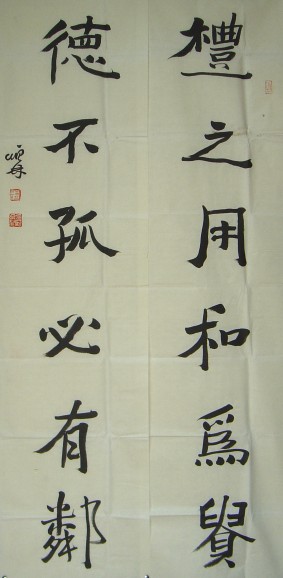 禮之用和爲貴
德不孤必有鄰